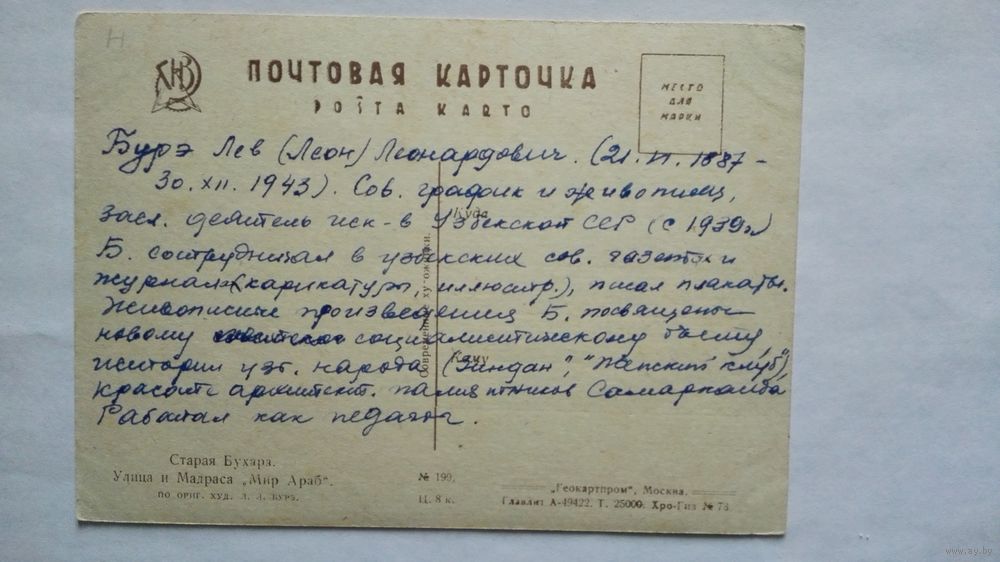 Н
ПОЧТОВАЯ КАРТОЧКА
POŞTA KARTO
МЕСТО
ДЛЯ
МАРКИ
Бурэ Лев (Леон) Леонардович. (21. II. 1887 –
30. XII. 1943). Сов. график и живописец,
засл. деятель иск-в Узбекской ССР (с 1939г.)
Б. сотрудничал в узбекских сов. газетах и
журналах (карикатуры, иллюстр.), писал плакаты.
Живописные произведения Б. посвящены
новому социалистическому быту,
истории узб. народа ("Зиндан", "Женский клуб"),
красоте архитект. памятников Самарканда
Работал как педагог.
Куда
Кому
Современные художники.
Старая Бухара.
Улица и Мадраса „Мир Араб“.
ПО ОРИГ. ХУД. Л. Л. БУРЭ.
№ 199.
Ц. 8 к.
„Геокартпром“, Москва.
Главлит А-49422. Т. 25000. Хро-Гиз № 78
www.ay.by